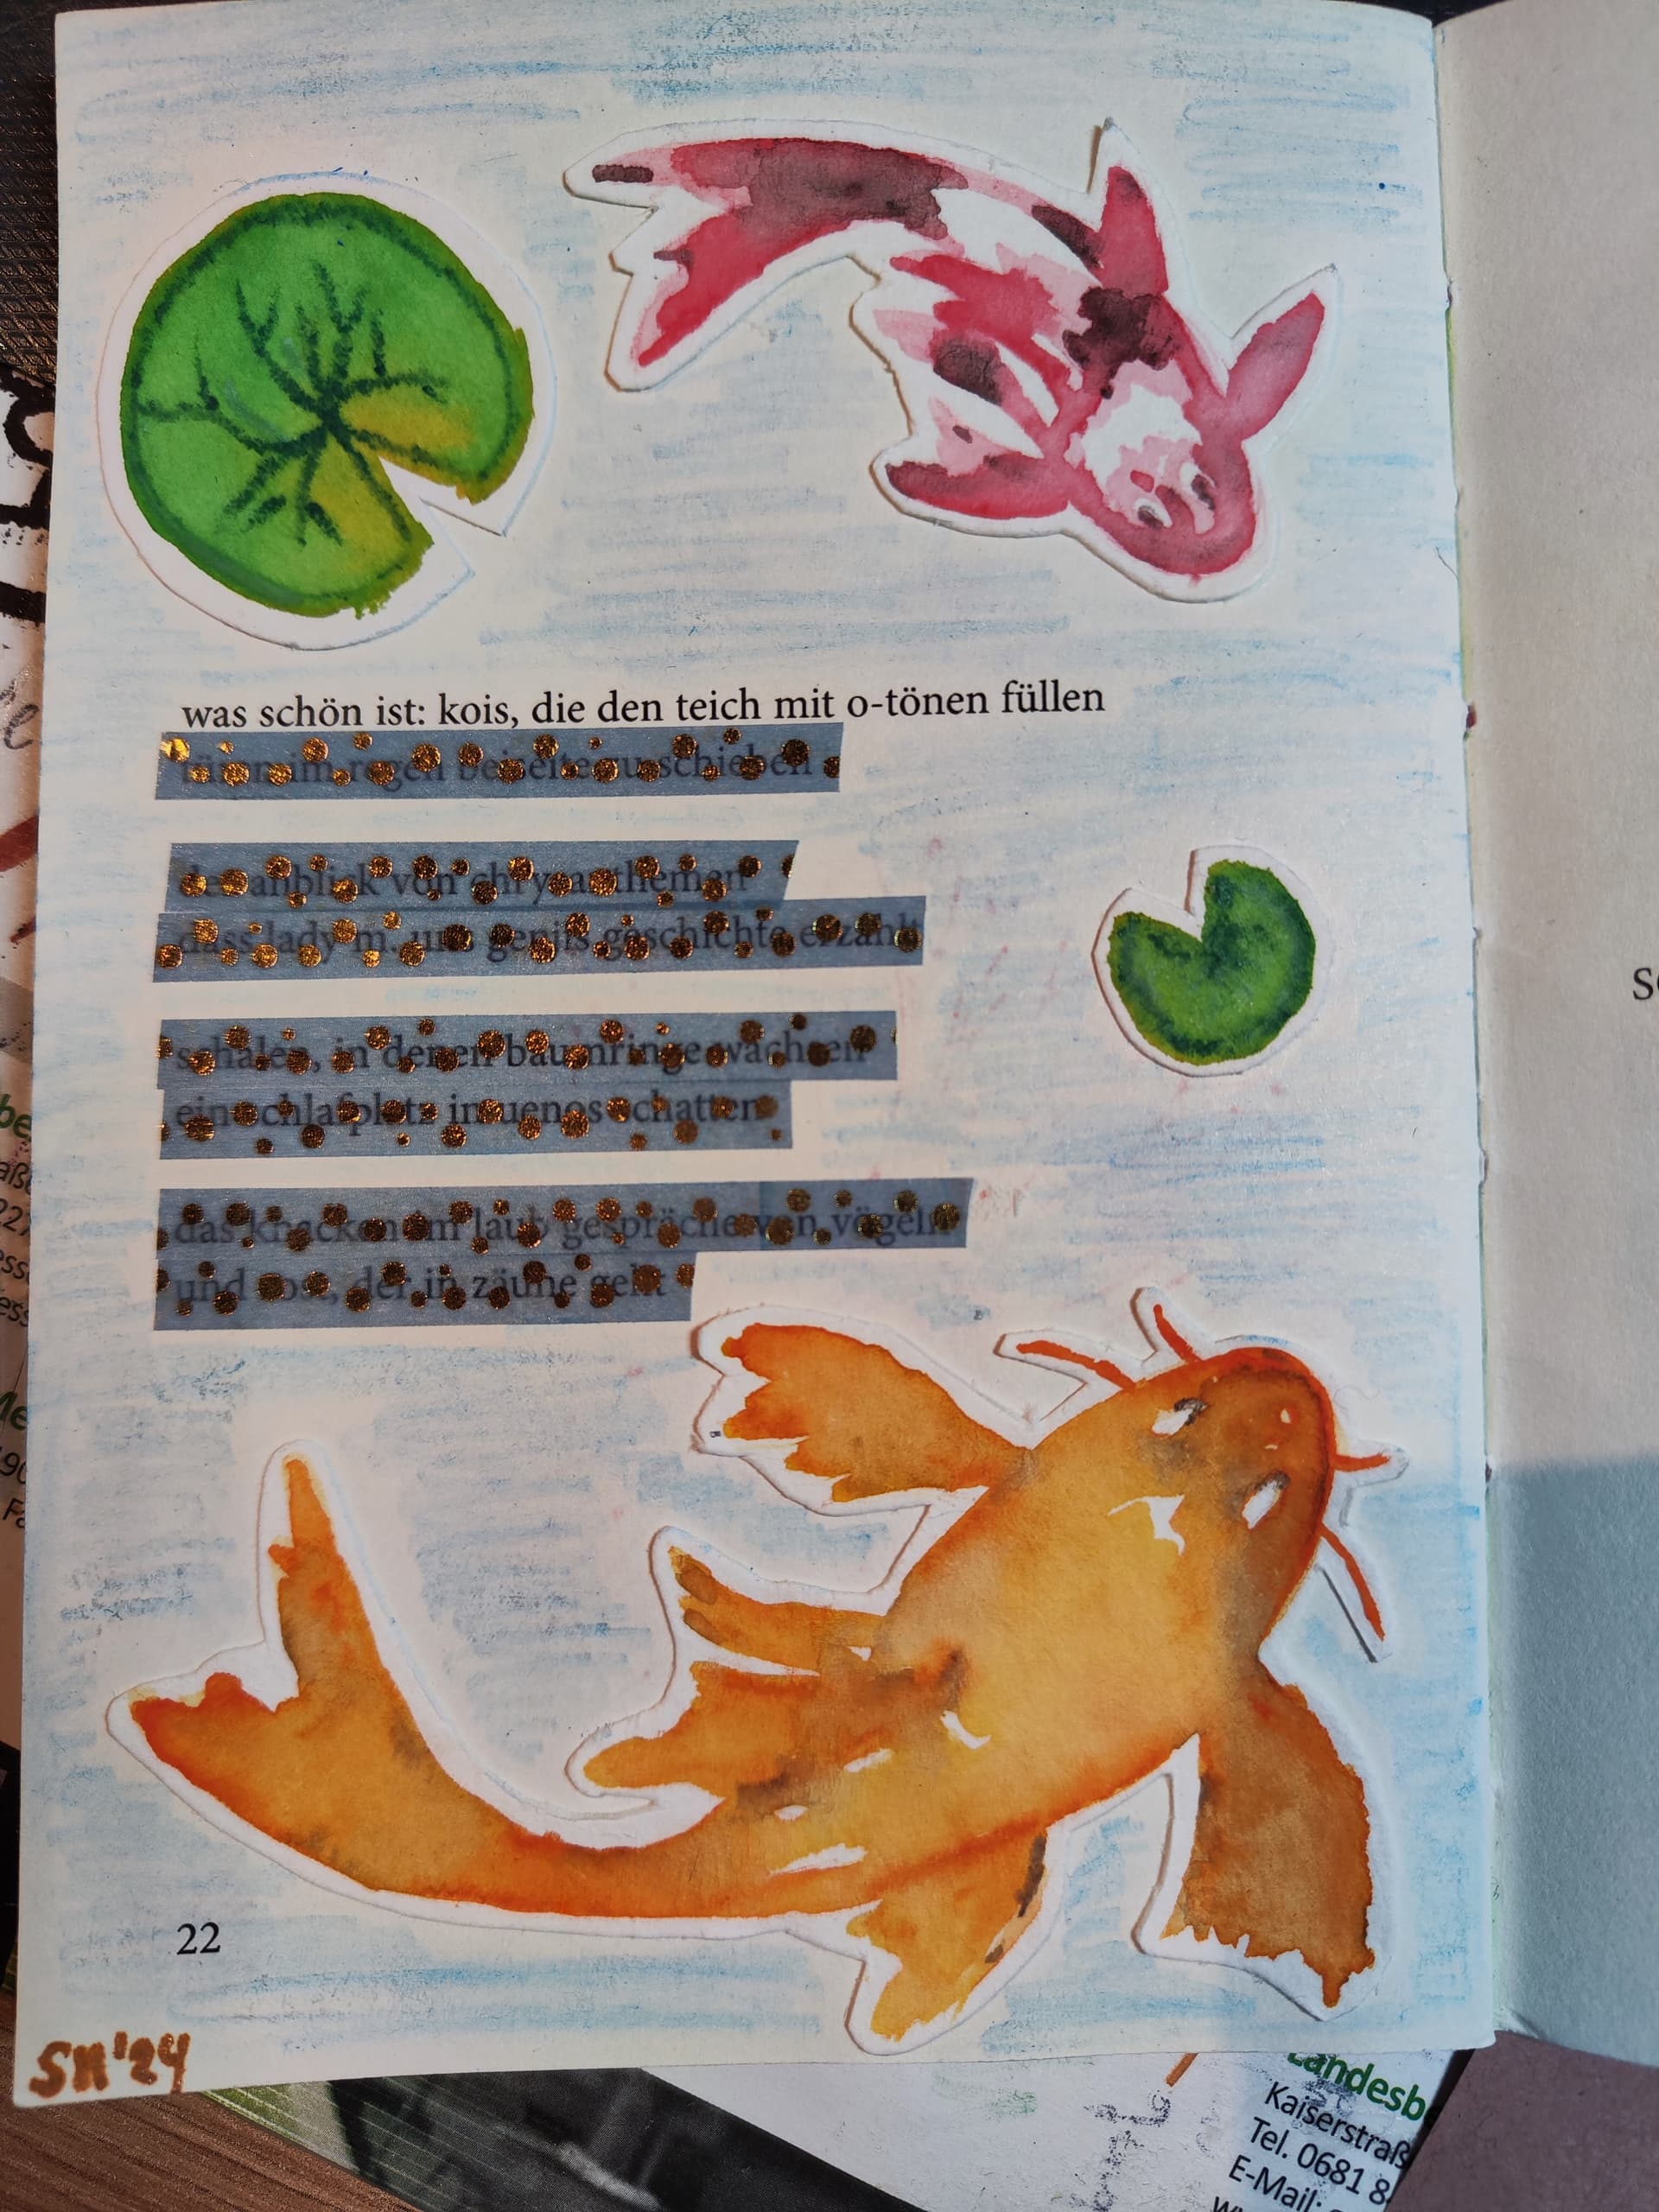 was schön ist: kois, die den teich mit o-tönen füllen
im regen beiseite zu schieben
den anblick von chrysanthemen
dass lady m. uns genjis geschichte erzählt
schalen, in denen baumringe wachsen
ein schlafplatz in uenos schatten
das knacken im laub gespräche von vögeln
und rost, der in zäune geht
22
SN'24
Landesb
Kaiserstraß
Tel. 0681 8
E-Mail: